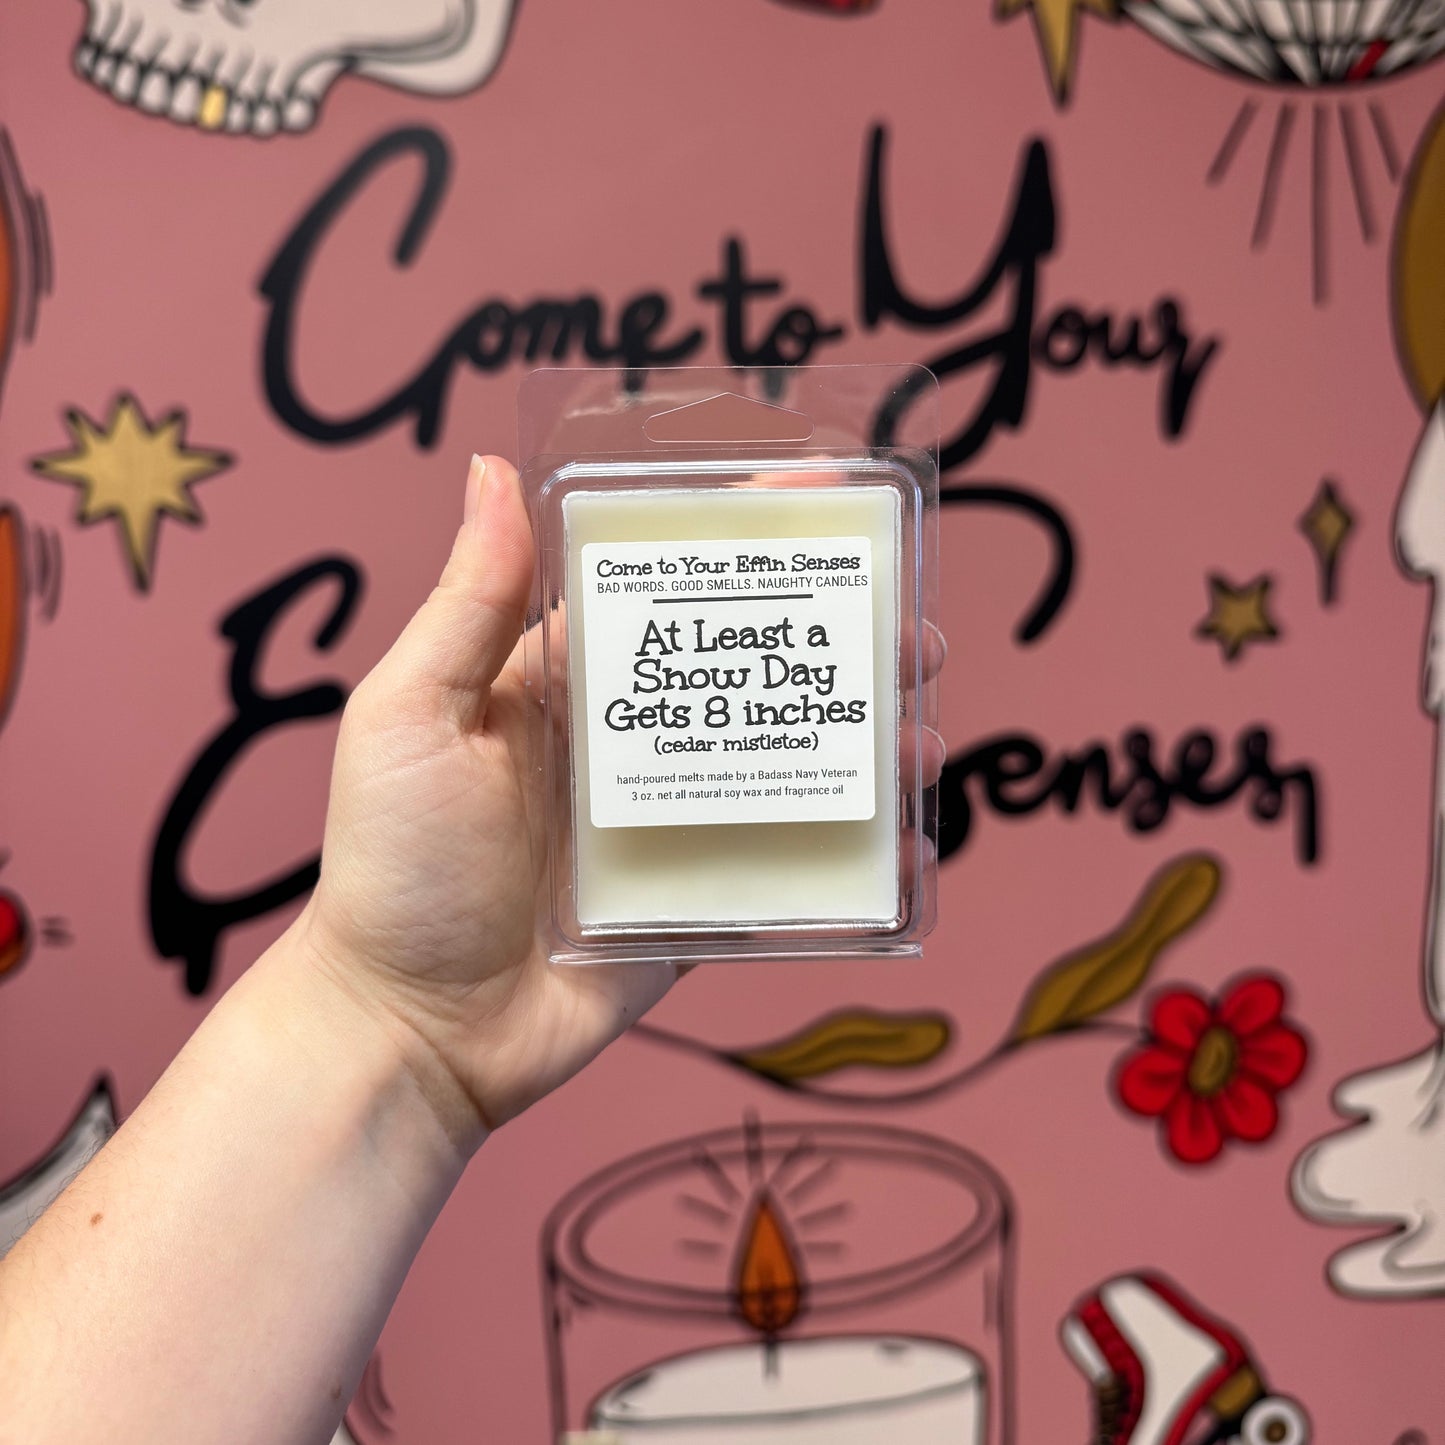 Come to Your
E Senses
Come to Your Effin Senses
BAD WORDS. GOOD SMELLS. NAUGHTY CANDLES
At Least a
Snow Day
Gets 8 inches
(cedar mistletoe)
hand-poured melts made by a Badass Navy Veteran
3 oz. net all natural soy wax and fragrance oil